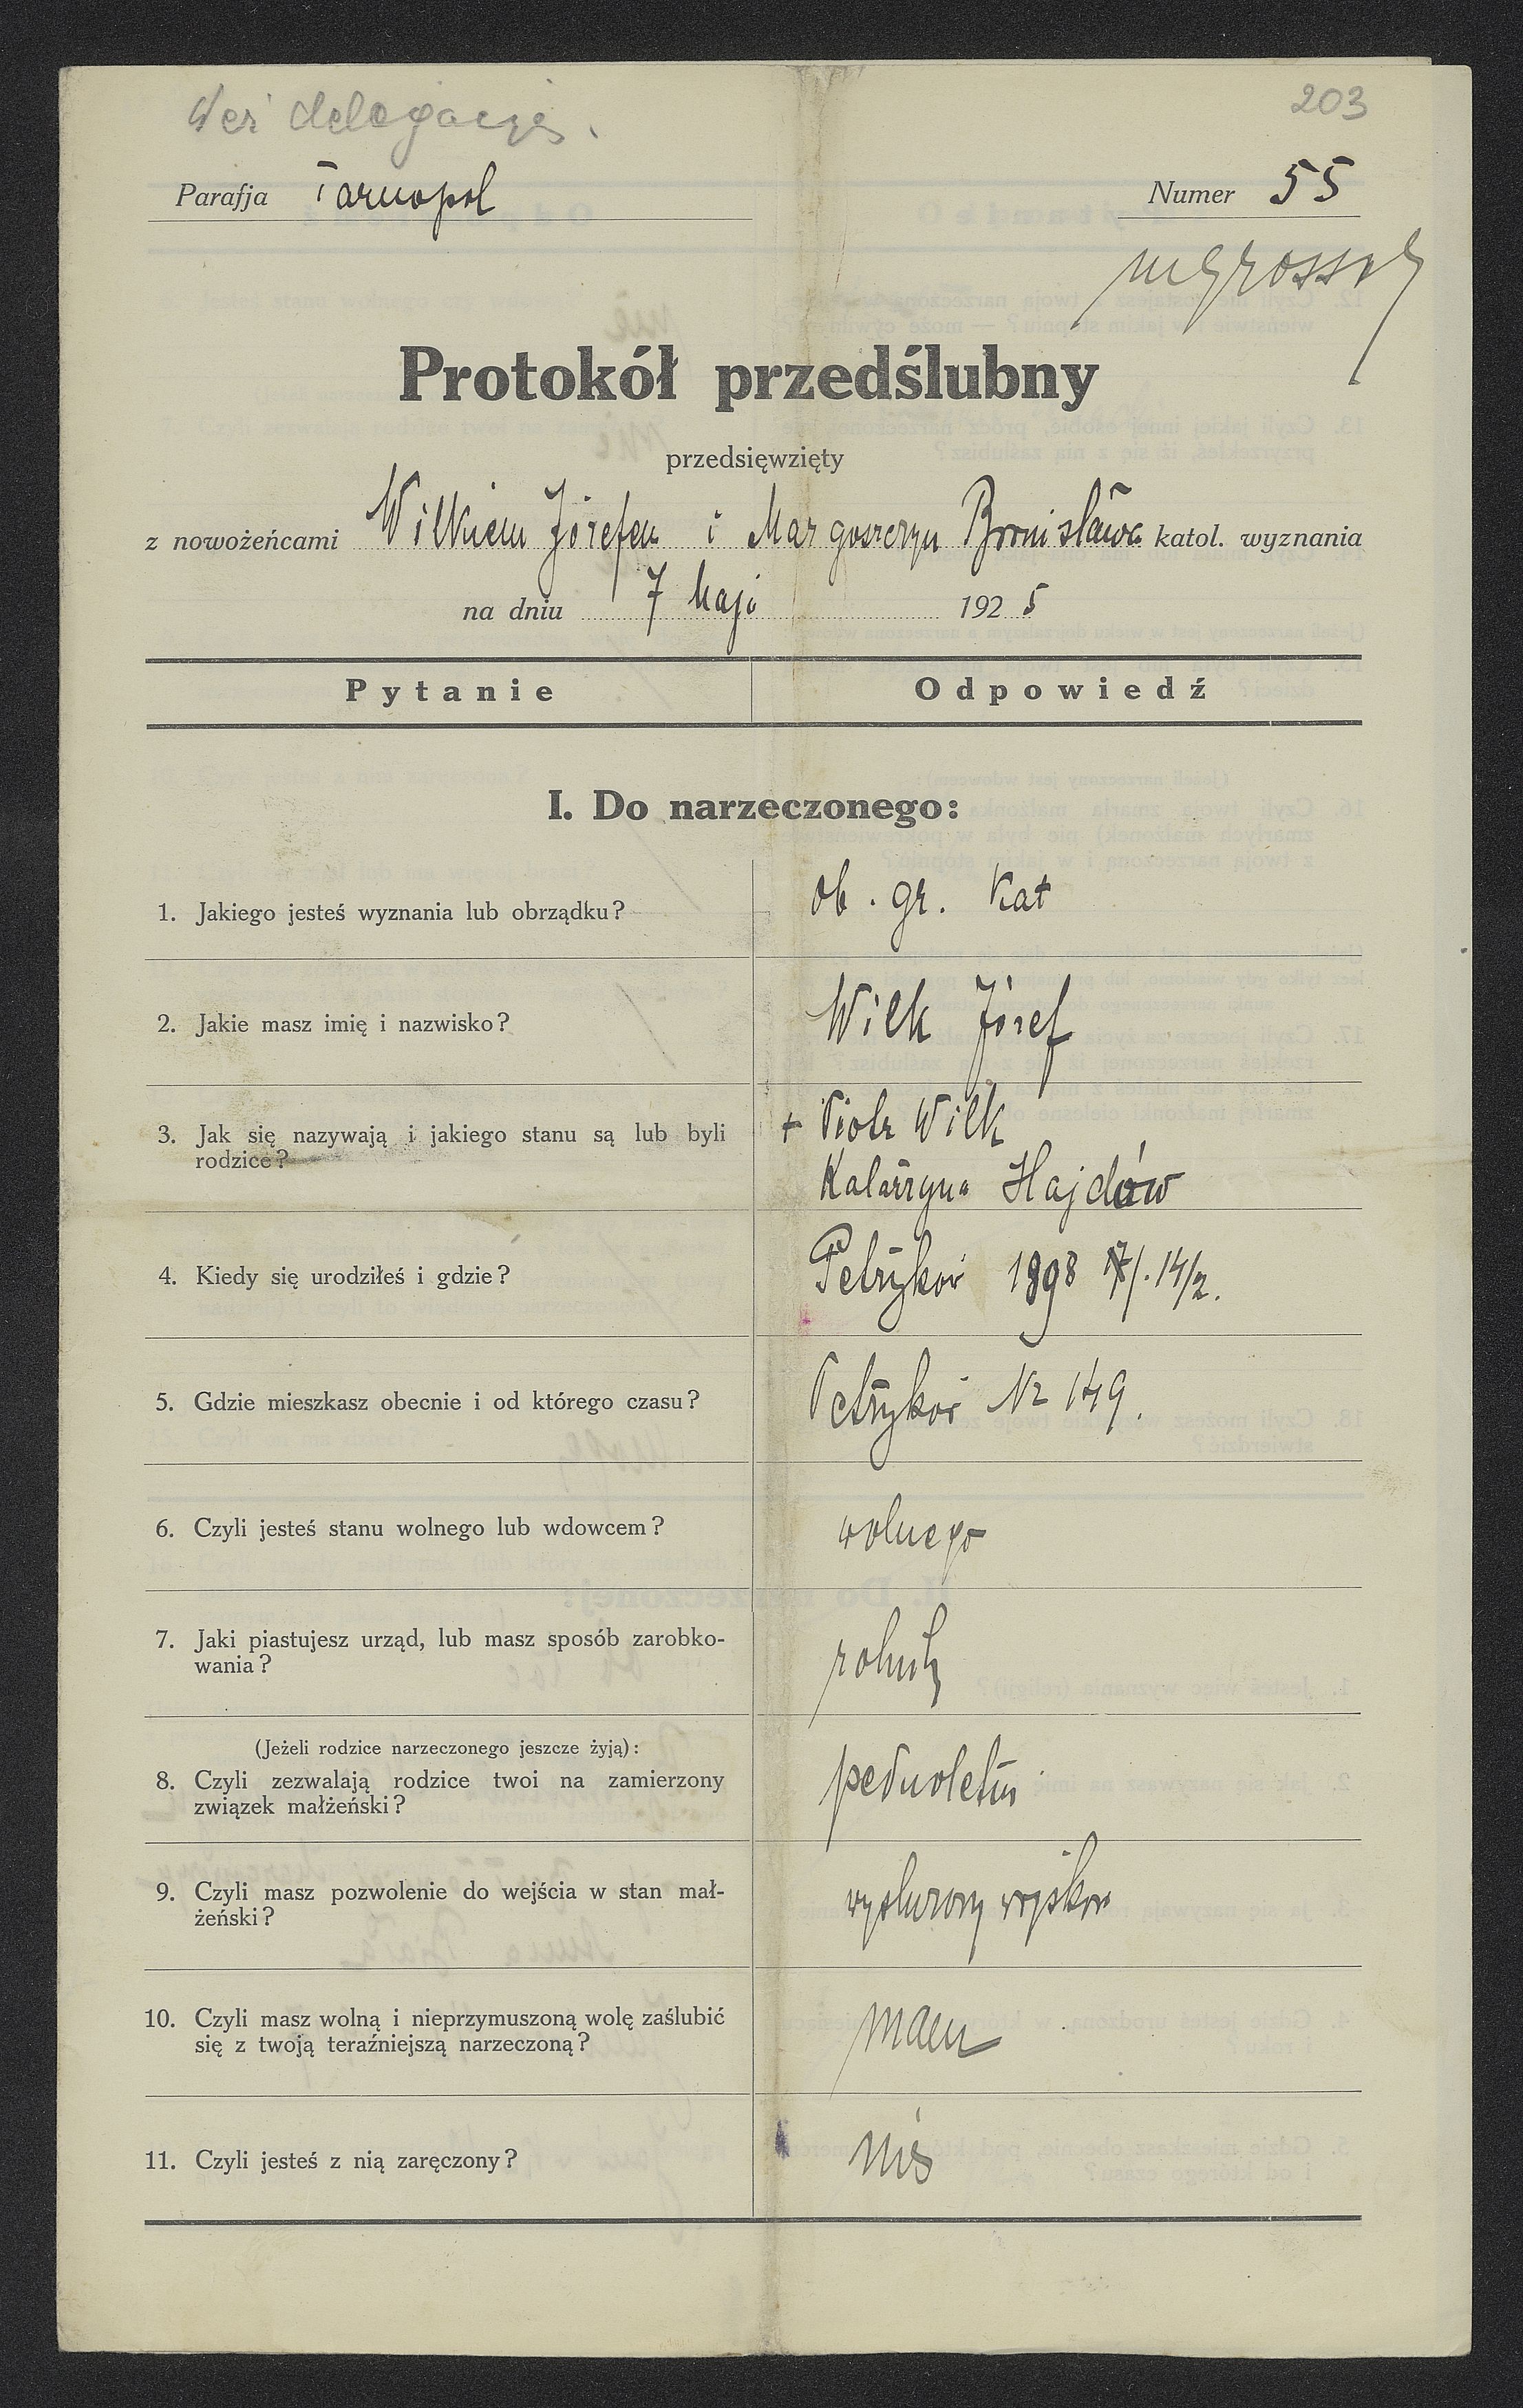 Weź delegację.
203
Parafja Tarnopol
Numer 55
Protokół przedślubny
przedsięwzięty
z nowożeńcami Wilkiem Józefem i Margoszczyn Bronisława katol. wyznania
na dniu 7 Maja 1925
Pytanie Odpowiedź
I. Do narzeczonego:
1. Jakiego jesteś wyznania lub obrządku?
ob. gr. Kat
2. Jakie masz imię i nazwisko?
Wilk Józef
3. Jak się nazywają i jakiego stanu są lub byli
rodzice?
+ Piotr Wilk
Katarzyna Hajdów
4. Kiedy się urodziłeś i gdzie?
Petryków 1898 14/2.
5. Gdzie mieszkasz obecnie i od którego czasu?
Petryków Nr 149.
6. Czyli jesteś stanu wolnego lub wdowcem?
wolnego
7. Jaki piastujesz urząd, lub masz sposób zarobko-
wania?
(Jeżeli rodzice narzeczonego jeszcze żyją):
8. Czyli zezwalają rodzice twoi na zamierzony
związek małżeński?
pełnoletni
9. Czyli masz pozwolenie do wejścia w stan mał-
żeński?
wysłużony wojskow
10. Czyli masz wolną i nieprzymuszoną wolę zaślubić
się z twoją teraźniejszą narzeczoną?
mam
11. Czyli jesteś z nią zaręczony?
nie